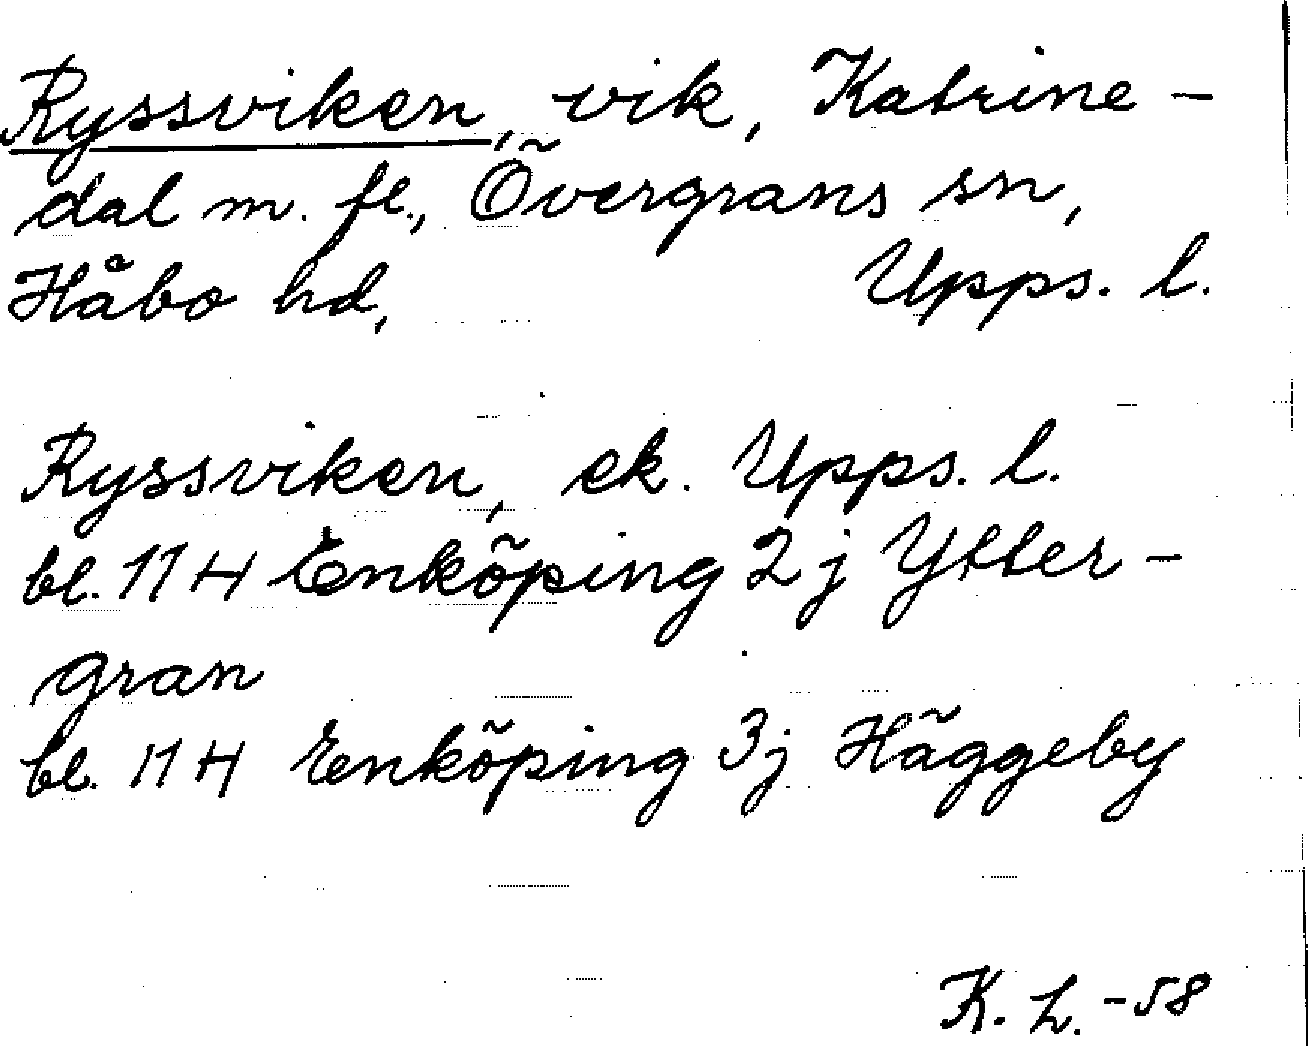 Ryssviken, vik, Katrine-
dal m. fl., Övergrans sn,
Håbo hd, Upps. l.
Ryssviken, ek. Upps. l.
bl. 11 H Enköping 2 j Ytter-
gran
bl. 11 H Enköping 3 j Häggeby
K. L. -58